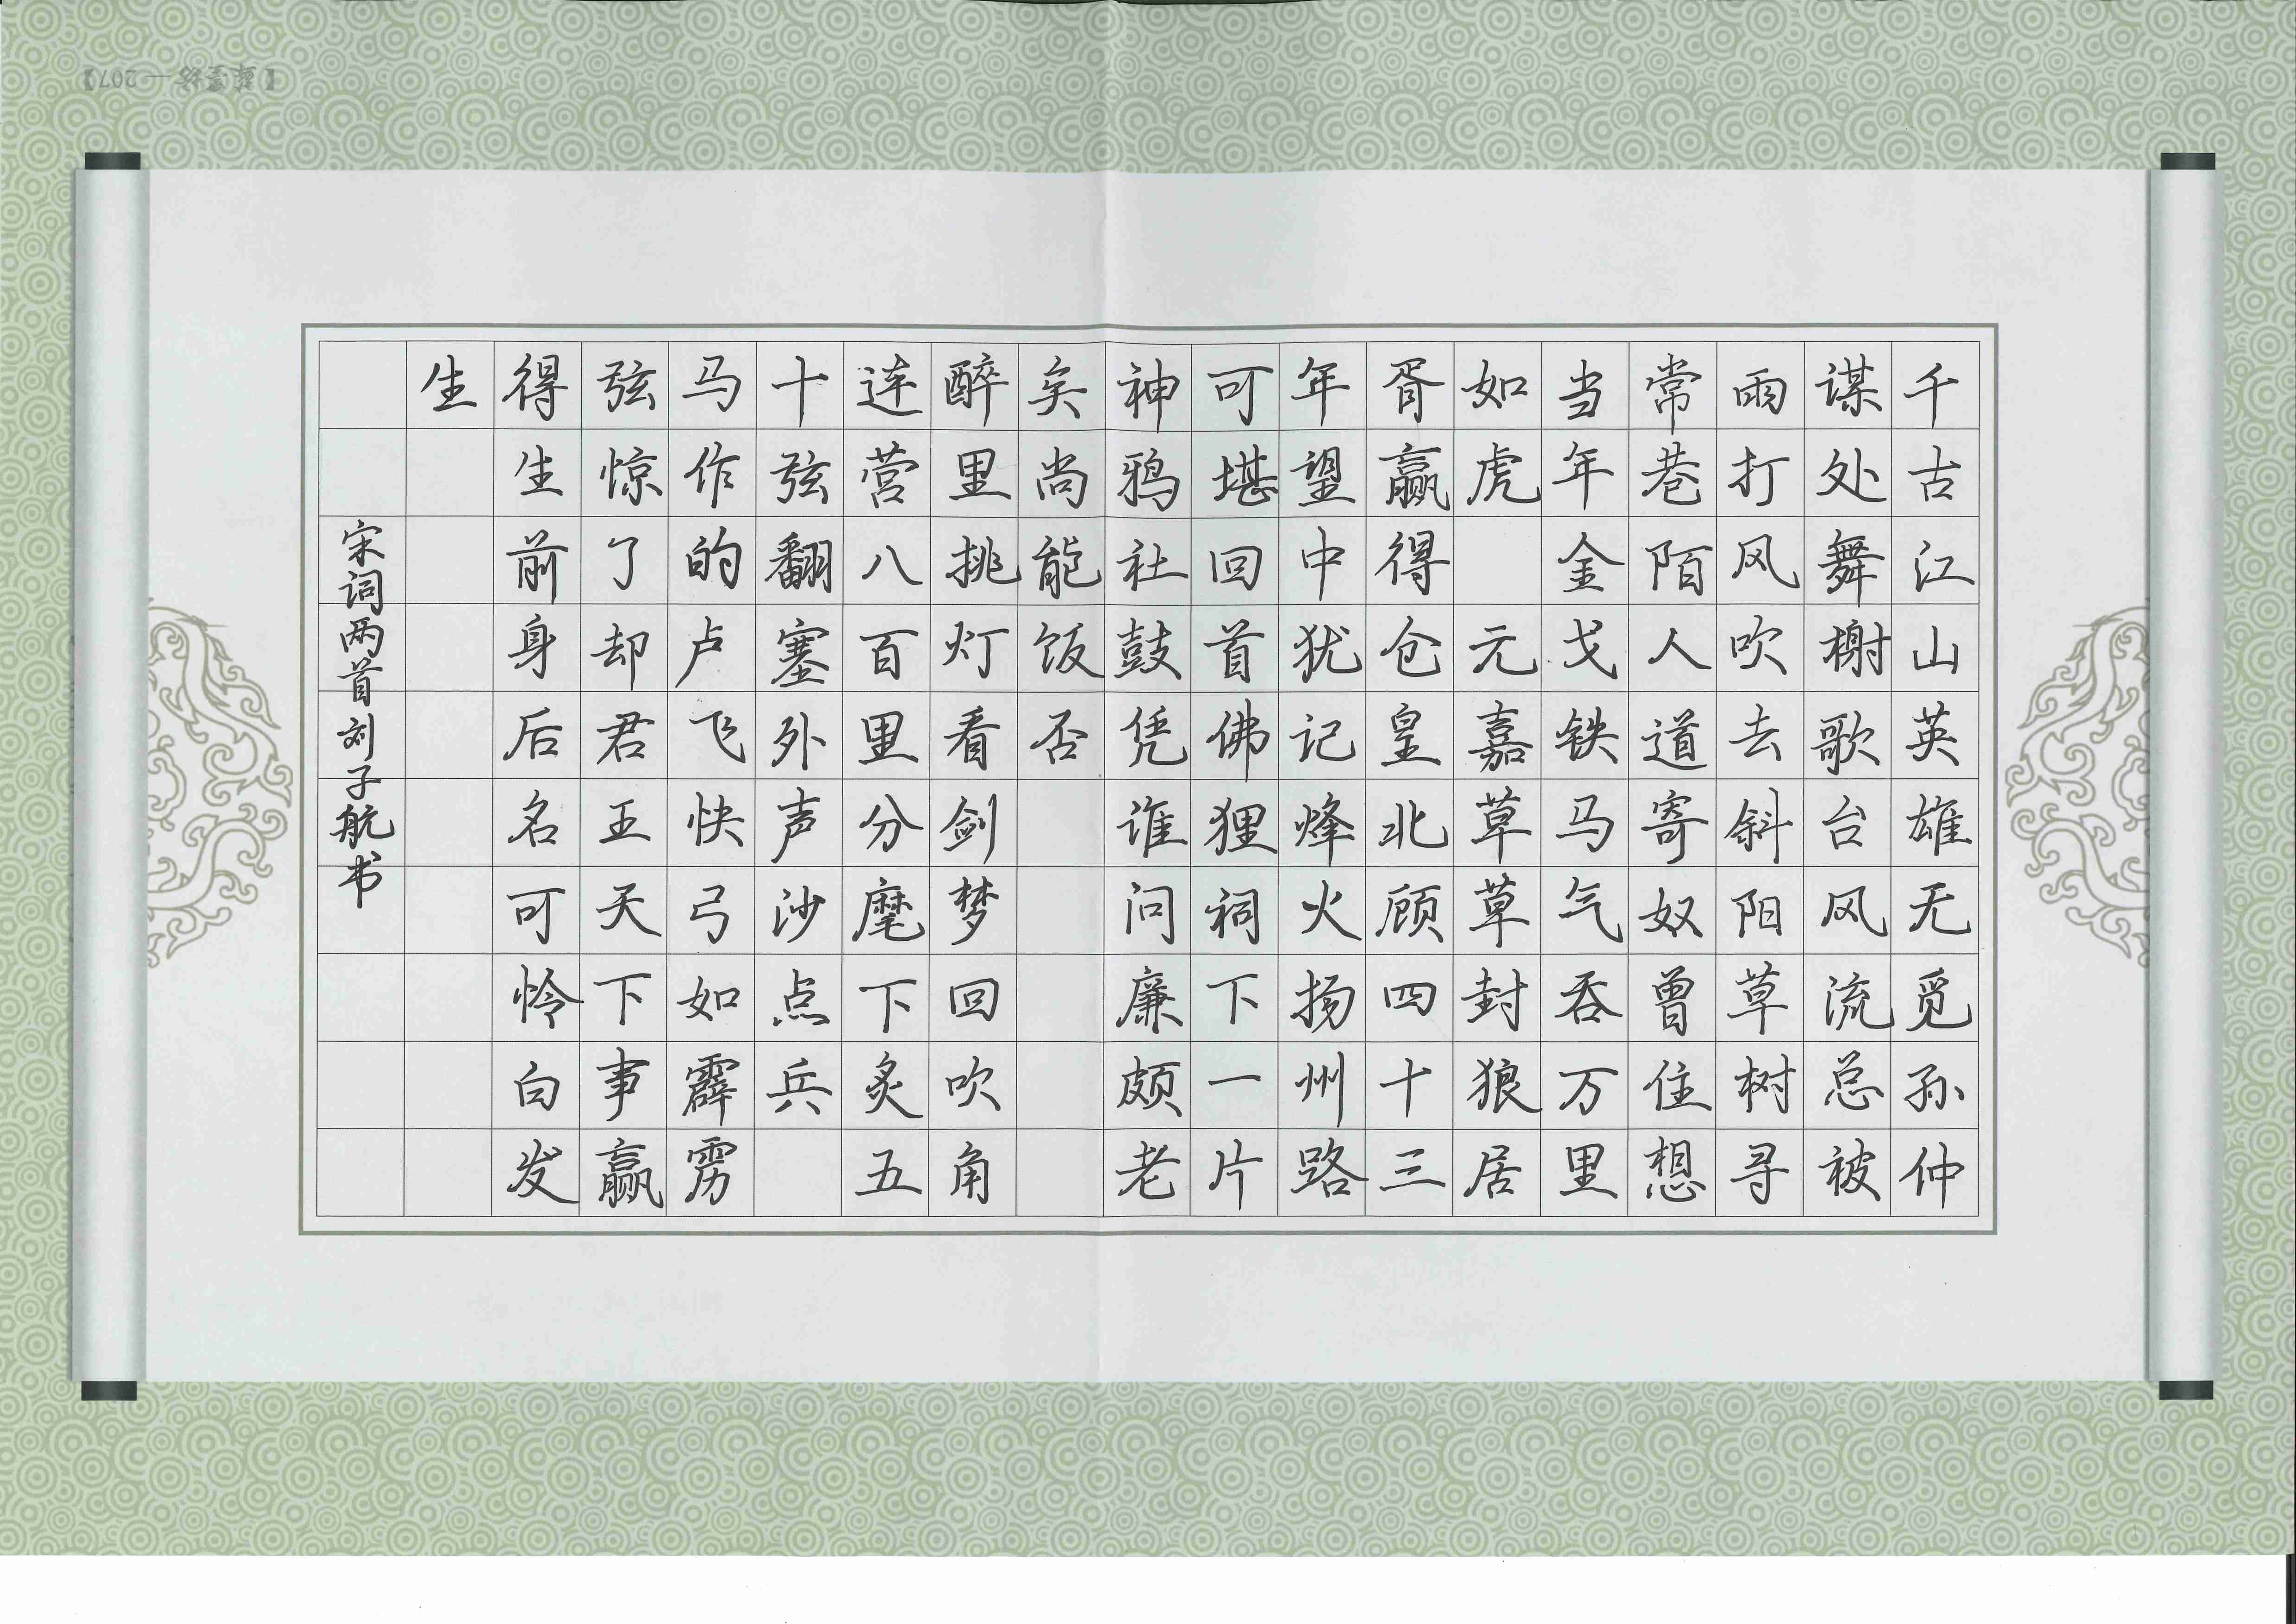 千古江山英雄无觅孙仲
谋处舞榭歌台风流总被
雨打风吹去斜阳草树寻
常巷陌人道寄奴曾住想
当年金戈铁马气吞万里
如虎 元嘉草草封狼居
胥赢得仓皇北顾四十三
年望中犹记烽火扬州路
可堪回首佛狸祠下一片
神鸦社鼓凭谁问廉颇老
矣尚能饭否
醉里挑灯看剑梦回吹角
连营八百里分麾下炙五
十弦翻塞外声沙点兵
马作的卢飞快弓如霹雳
弦惊了却君王天下事赢
得生前身后名可怜白发
生
宋词两首刘子航书
207